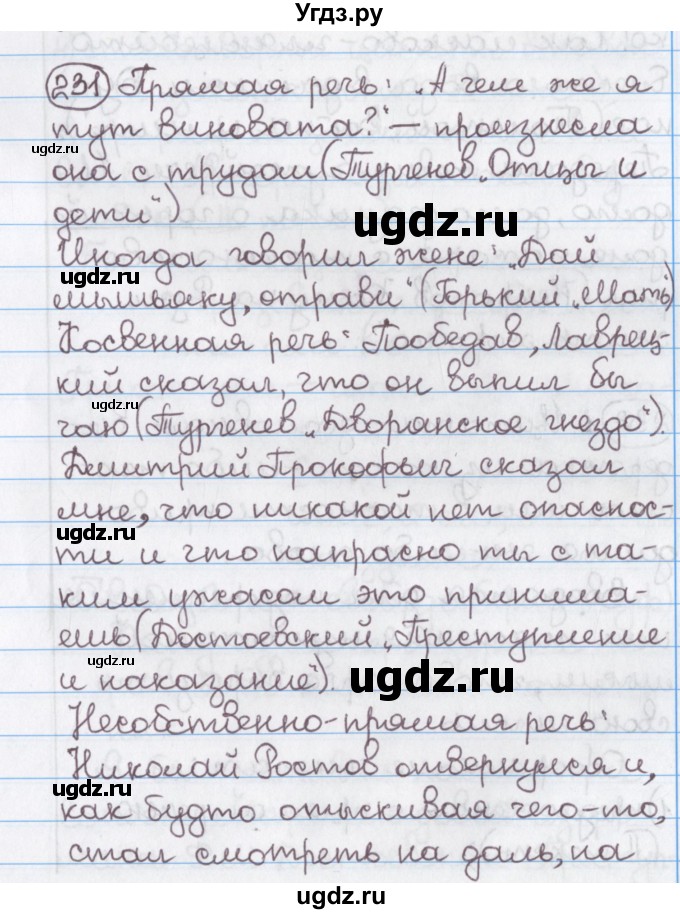 Угдз.ру
231 Прямая речь: „А чем же я
тут виновата?" – произнесла
она с трудом (Тургенев „Отцы и
дети")
Иногда говорил жене: „Дай
мышьяку, отрави" (Горький „Мать")
Косвенная речь: Пообедав, Лаврец-
кий сказал, что он выпил бы
чаю (Тургенев „Дворянское гнездо").
Дмитрий Прокофьич сказал
мне, что никакой нет опаснос-
ти и что напрасно ты с та-
ким ужасом это принима-
ешь (Достоевский „Преступление
и наказание").
Несобственно-прямая речь:
Николай Ростов отвернулся и,
как будто отыскивая чего-то,
стал смотреть на даль, на
ugdz.ru
ugdz.ru
ugdz.ru
ugdz.ru
ugdz.ru
ugdz.ru
ugdz.ru
ugdz.ru
ugdz.ru
ugdz.ru
ugdz.ru
ugdz.ru